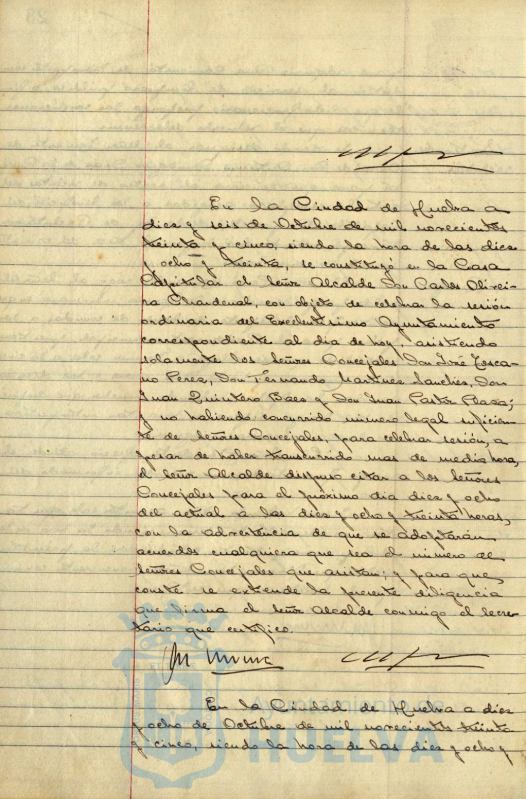 En la Ciudad de Huelva a
diez y seis de Octubre de mil novecientos
treinta y cinco, siendo la hora de las diez
y ocho y treinta, se constituyó en la Casa
Capitular el Señor Alcalde Don Carlos Olivei-
ra Chardenal, con objeto de celebrar la sesión
ordinaria del Excelentísimo Ayuntamiento
correspondiente al día de hoy, asistiendo
solamente los Señores Concejales Don José Tosca-
no Perez, Don Fernando Martinez Sanchez, Don
Juan Quintero Baez y Don Juan Pastor Plaza;
y no habiendo concurrido número legal suficien-
te de Señores Concejales, para celebrar sesión, a
pesar de haber transcurrido mas de media hora,
el Señor Alcalde dispuso citar a los Señores
Concejales para el próximo dia diez y ocho
del actual a las diez y ocho y treinta horas,
con la advertencia de que se adoptarán
acuerdos cualquiera que sea el número de
Señores Concejales que asistan; y para que
conste se extiende la presente diligencia
que firma el Señor Alcalde conmigo el Secre-
tario que certifico.
En la Ciudad de Huelva a diez
y ocho de Octubre de mil novecientos treinta
y cinco, siendo la hora de las diez y ocho y
HUELVA